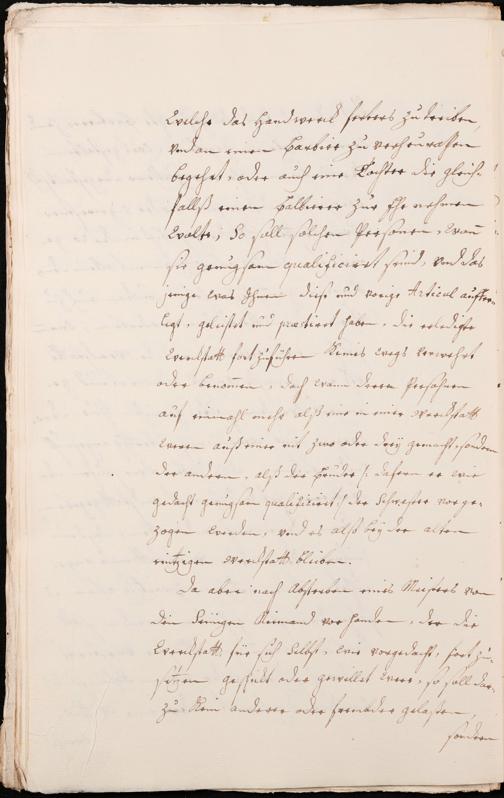 Welche das Handwerck ferners zu treiben,
und an einen Barbier zu verheurathen
begehrt, oder auch eine Tochter die gleich-
fallß einen Balbierer zur Ehe nehmen
Wolte; So soll solchen Personen, Wann
sie genugsam qualificirt seind, und das
jenige was Ihnen diese und vorige Articul aufer-
legt, geleistet und præstiert haben, die erledigte
Werckstatt fortzuführen Keines wegs verwehrt
oder benommen, doch wann deren Persohnen
auf einmahl mehr alß eine in einer Werckstatt
weren auß einer nit zwo oder dreÿ gemacht, sondern
der andern, alß der Bruder /: dafern er wie
gedacht genugsam qualificirt :/ der Schwester vorge-
zogen werden, und es alß beÿ der alten
eintzigen Werckstatt bleiben.
Da aber nach Absterben eines Meisters von
den Seinigen Niemand vorhanden, der die
Werckstatt für sich Selbst, wie vorgedacht, fortzu-
setzen gesinnt oder gewillet were, so soll dar-
zu Kein anderer oder frembder gelassen,
sondern